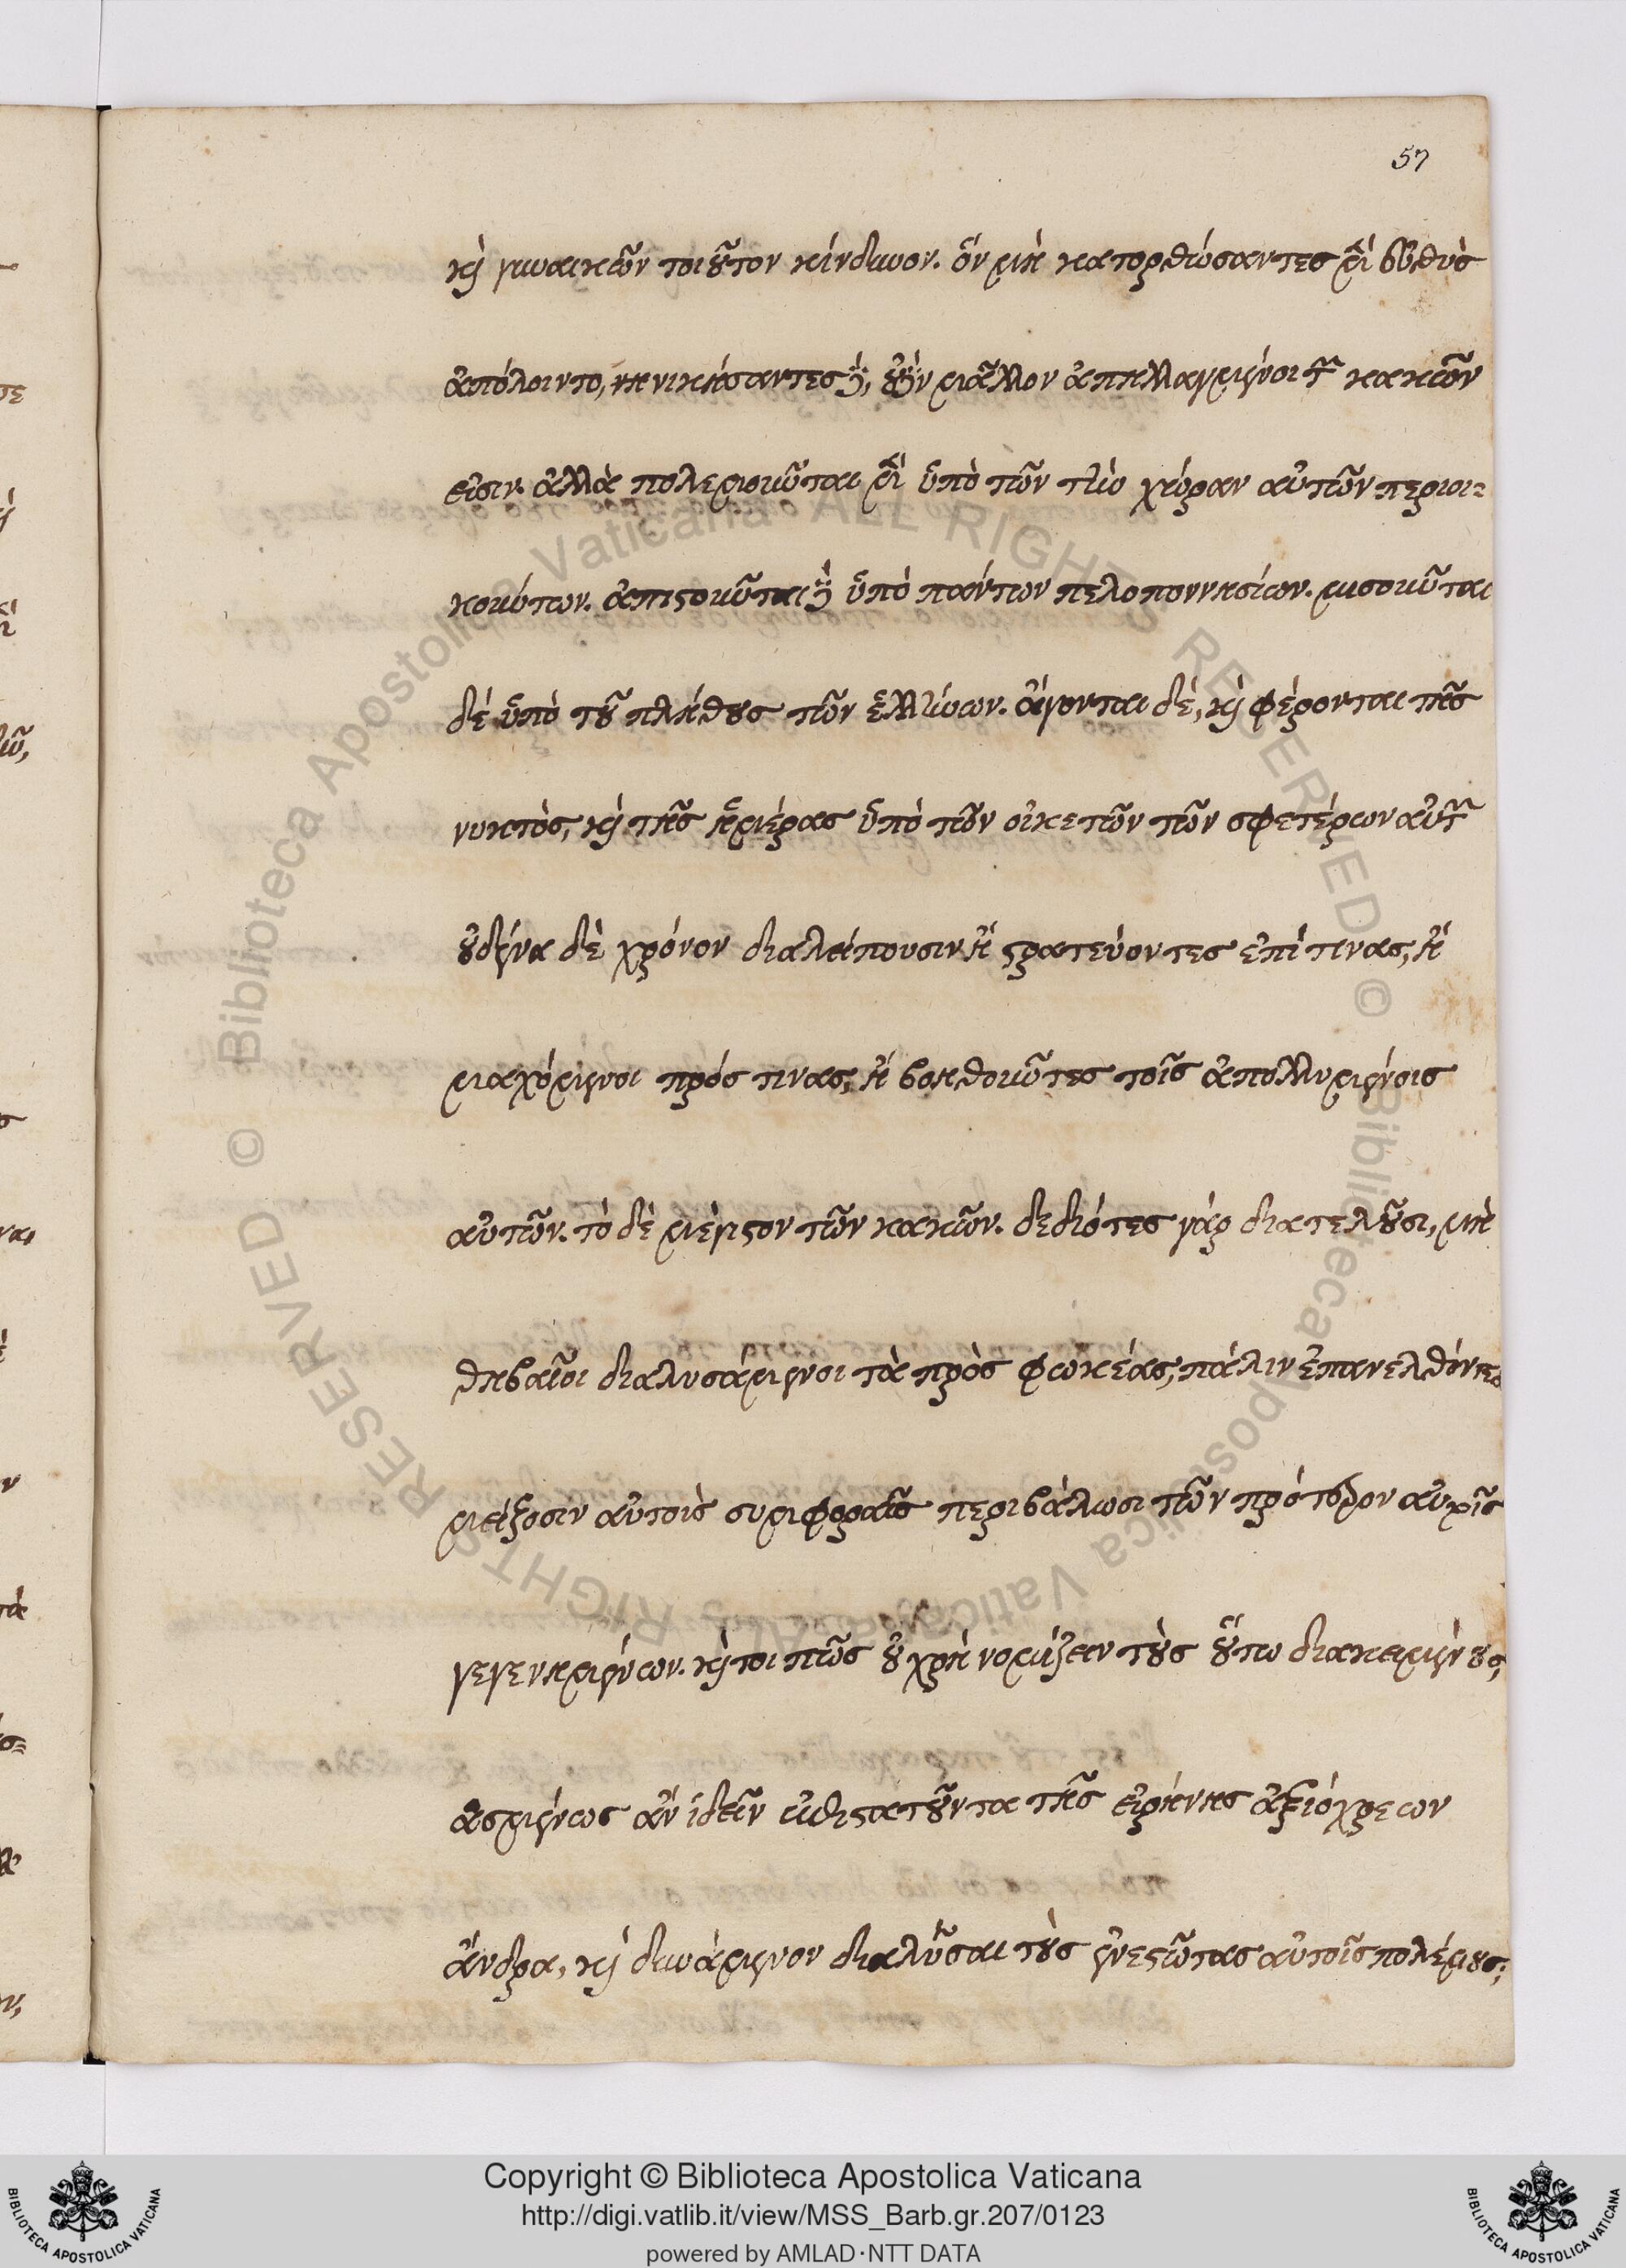 57
κὶ γυναικῶν τοιοῦτον κίνδυνον. ὃν μὴ κατορθώσαντες μὲν εὐθὺς
ἀπόλοιντο, νικήσαντες δὲ, οὐδὲν μᾶλλον ἀπηλλαγμένοι τῶν κακῶν
εἰσιν. ἀλλὰ πολεμοῦνται μὲν ὑπὸ τῶν τὴν χώραν αὐτῶν περιοι=
κούντων. ἀπιστοῦνται δὲ ὑπὸ πάντων πελοποννησίων. μισοῦνται
δέ ὑπὸ τοῦ πλήθους τῶν ἑλλήνων. ἄγονται δὲ, κὶ φέρονται τῆς
νυκτὸς, κὶ τῆς ἡμέρας ὑπὸ τῶν οἰκετῶν τῶν σφετέρων αὐτῶν
οὐδένα δὲ χρόνον διαλείπουσιν ἢ στρατεύοντες ἐπί τινας, ἢ
μαχόμενοι πρός τινας, ἢ βοηθοῦντες τοῖς ἀπολλυμένοις
αὐτῶν. τὸ δὲ μέγιστον τῶν κακῶν. δεδιότες γὰρ διατελοῦσι, μὴ
θηβαῖοι διαλυσάμενοι τὰ πρὸς φωκέας, πάλιν ἐπανελθόντες
μείζοσιν αὐτοὶς συμφοραῖς περιβάλωσι τῶν πρότερον αὐτοῖς
γεγενημένων. κὶ τοι πῶς οὐ χρὴ νομίζειν τοὺς οὕτω διακειμένους,
ἀσμένως ἂν ἰδεῖν ἐπιστατοῦντα τῆς εἰρήνης ἀξιόχρεων
ἄνδρα, κὶ δυνάμενον διαλῦσαι τοὺς ἐνεστῶτας αὐτοῖς πολέμους;
Copyright © Biblioteca Apostolica Vaticana
http://digi.vatlib.it/view/MSS_Barb.gr.207/0123
powered by AMLAD·NTT DATA
BIBLIOTECA APOSTOLICA VATICANA
BIBLIOTECA APOSTOLICA VATICANA
© Biblioteca Apostolica Vaticana ALL RIGHTS RESERVED © Biblioteca Apostolica Vaticana ALL RIGHTS RESERVED